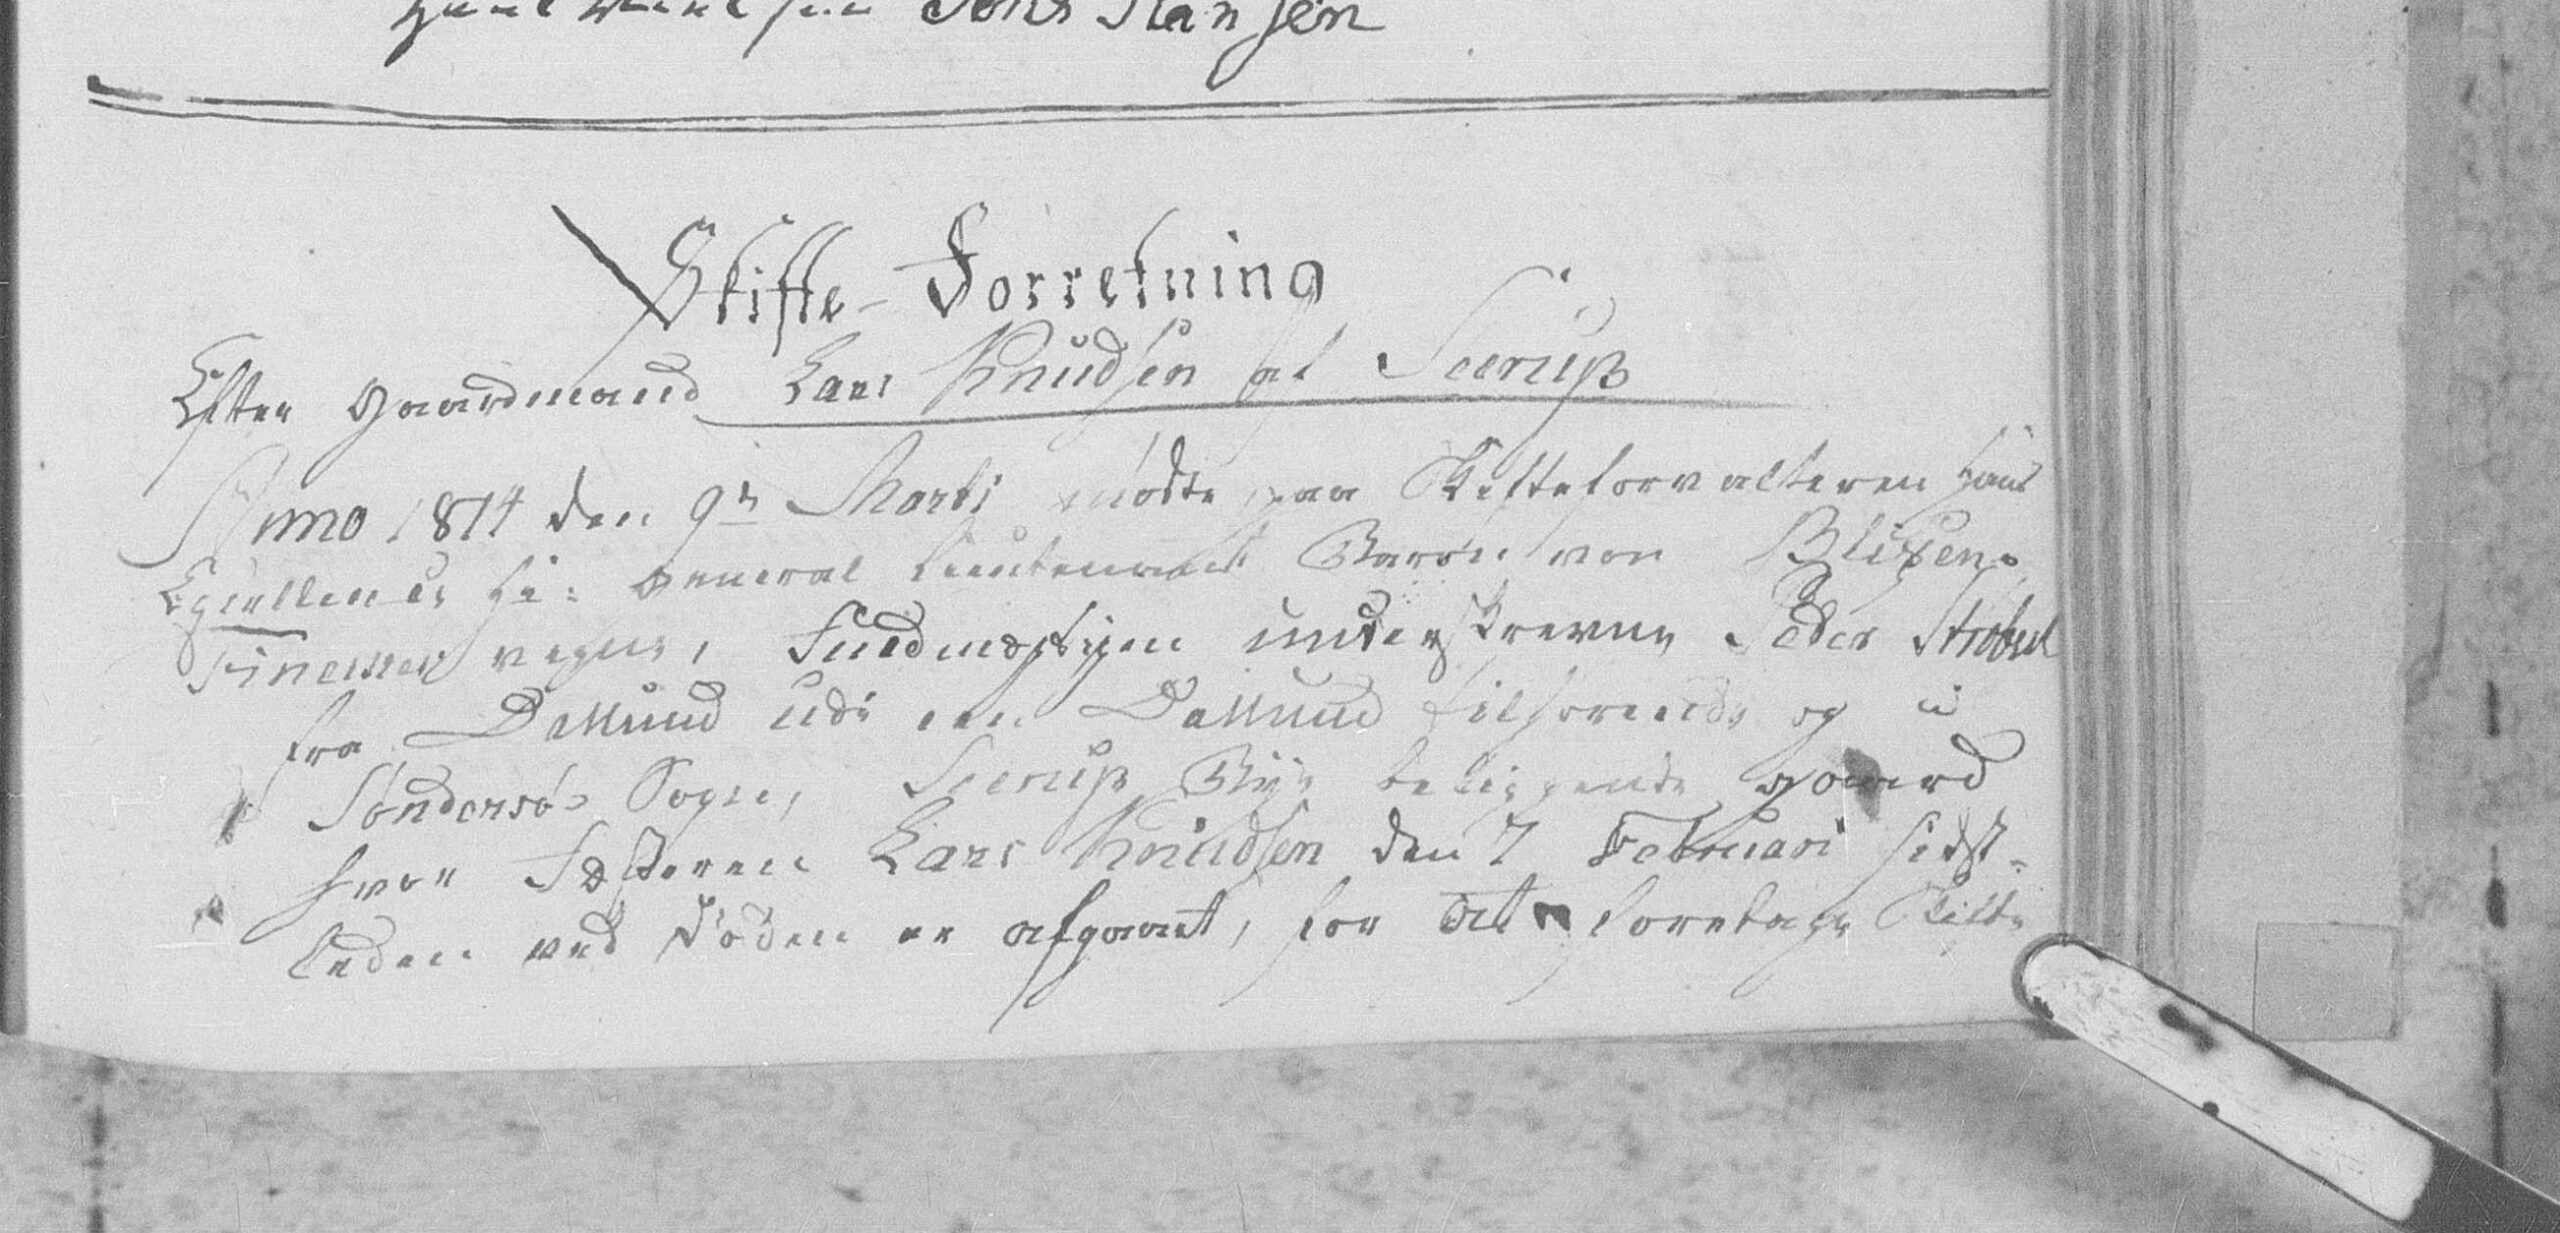 Jens Hansen
Skifte-Forretning
Efter gaardmand Lars Knudsen af Seerup
Anno 1814 den 9n Marti mødte paa Skifteforvalteren Hans
Excellence Hr: General Lieutenant Baron von Blixen-
Fineckes vegne, Fuldmægtigen underskrevne Peder Strobel
fra Dallund udi en Dallund tilhørende og i
Søndersøe Sogn, Seerup Bye beliggende gaard
hvor Fæsteren Lars Knudsen den 7 Februari sidst-
leden ved Døden er afgaaet, for at foretage Skifte